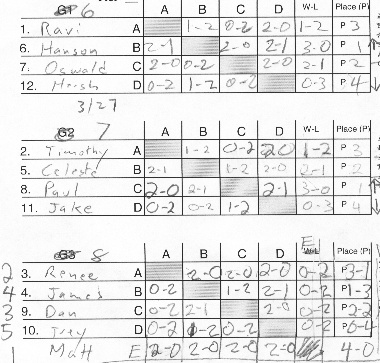 6
A B C D W-L Place (P)
1. Ravi A 1-2 0-2 2-0 1-2 P 3
6. Hanson B 2-1 2-0 2-1 3-0 P 1
7. Oswald C 2-0 0-2 2-0 2-1 P 2
12. Hersh D 0-2 1-2 0-2 0-3 P 4
3/27
7
A B C D W-L Place (P)
2. Timothy A 1-2 0-2 2-0 1-2 P 3
5. Celeste B 2-1 1-2 2-0 2-1 P 2
8. Paul C 2-0 2-1 2-1 3-0 P 1
11. Jake D 0-2 0-2 1-2 0-3 P 4
8 E
A B C D W-L Place (P)
2 3. Renee A 2-0 2-0 2-0 0-2 P 3-1
4 4. James B 0-2 1-2 2-1 0-2 P 1-3
3 9. Dan C 0-2 2-1 2-0 0-2 P 2-2
5 10. Trey D 0-2 1-2 0-2 0-2 P 0-4
1 Matt E 2-0 2-0 2-0 2-0 4-0